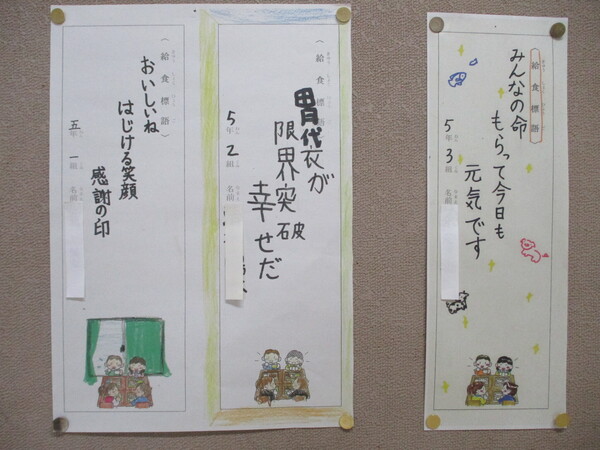 (給食標語)
みんなの命
もらって今日も
元気です
5年 3組 名前
(給食標語)
胃袋が
限界突破
幸せだ
5年 2組 名前
(給食標語)
おいしいね
はじける笑顔
感謝の印
五年 一組 名前